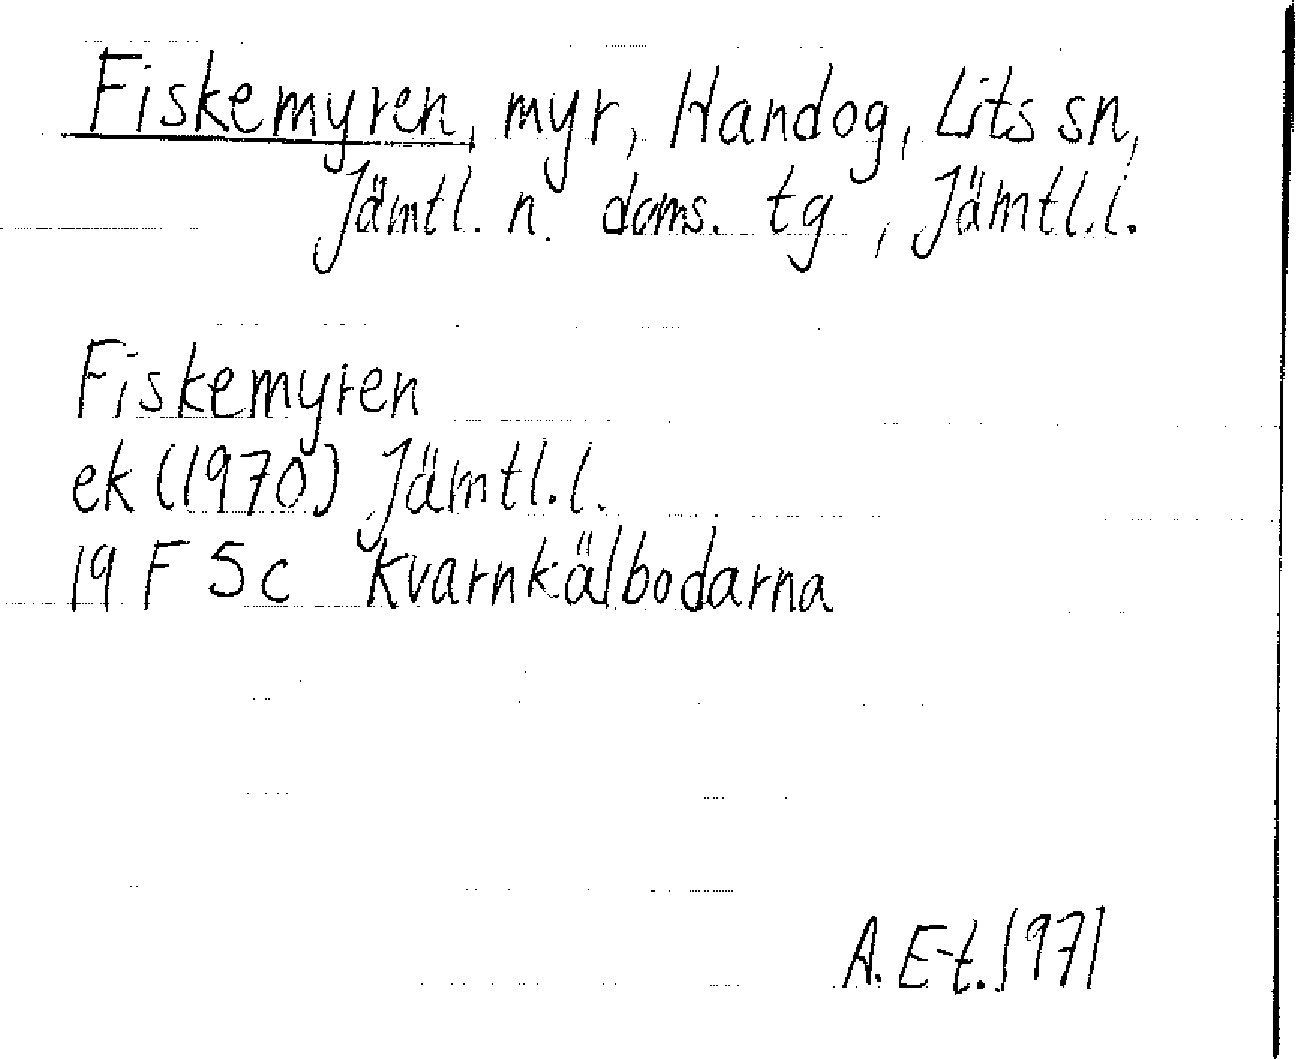 Fiskemyren, myr, Handog, Lits sn,
Jämtl. n. doms. tg, Jämtl.l.
Fiskemyren
ek (1970) Jämtl.l.
19 F 5c Kvarnkälbodarna
A. E-t. 1971